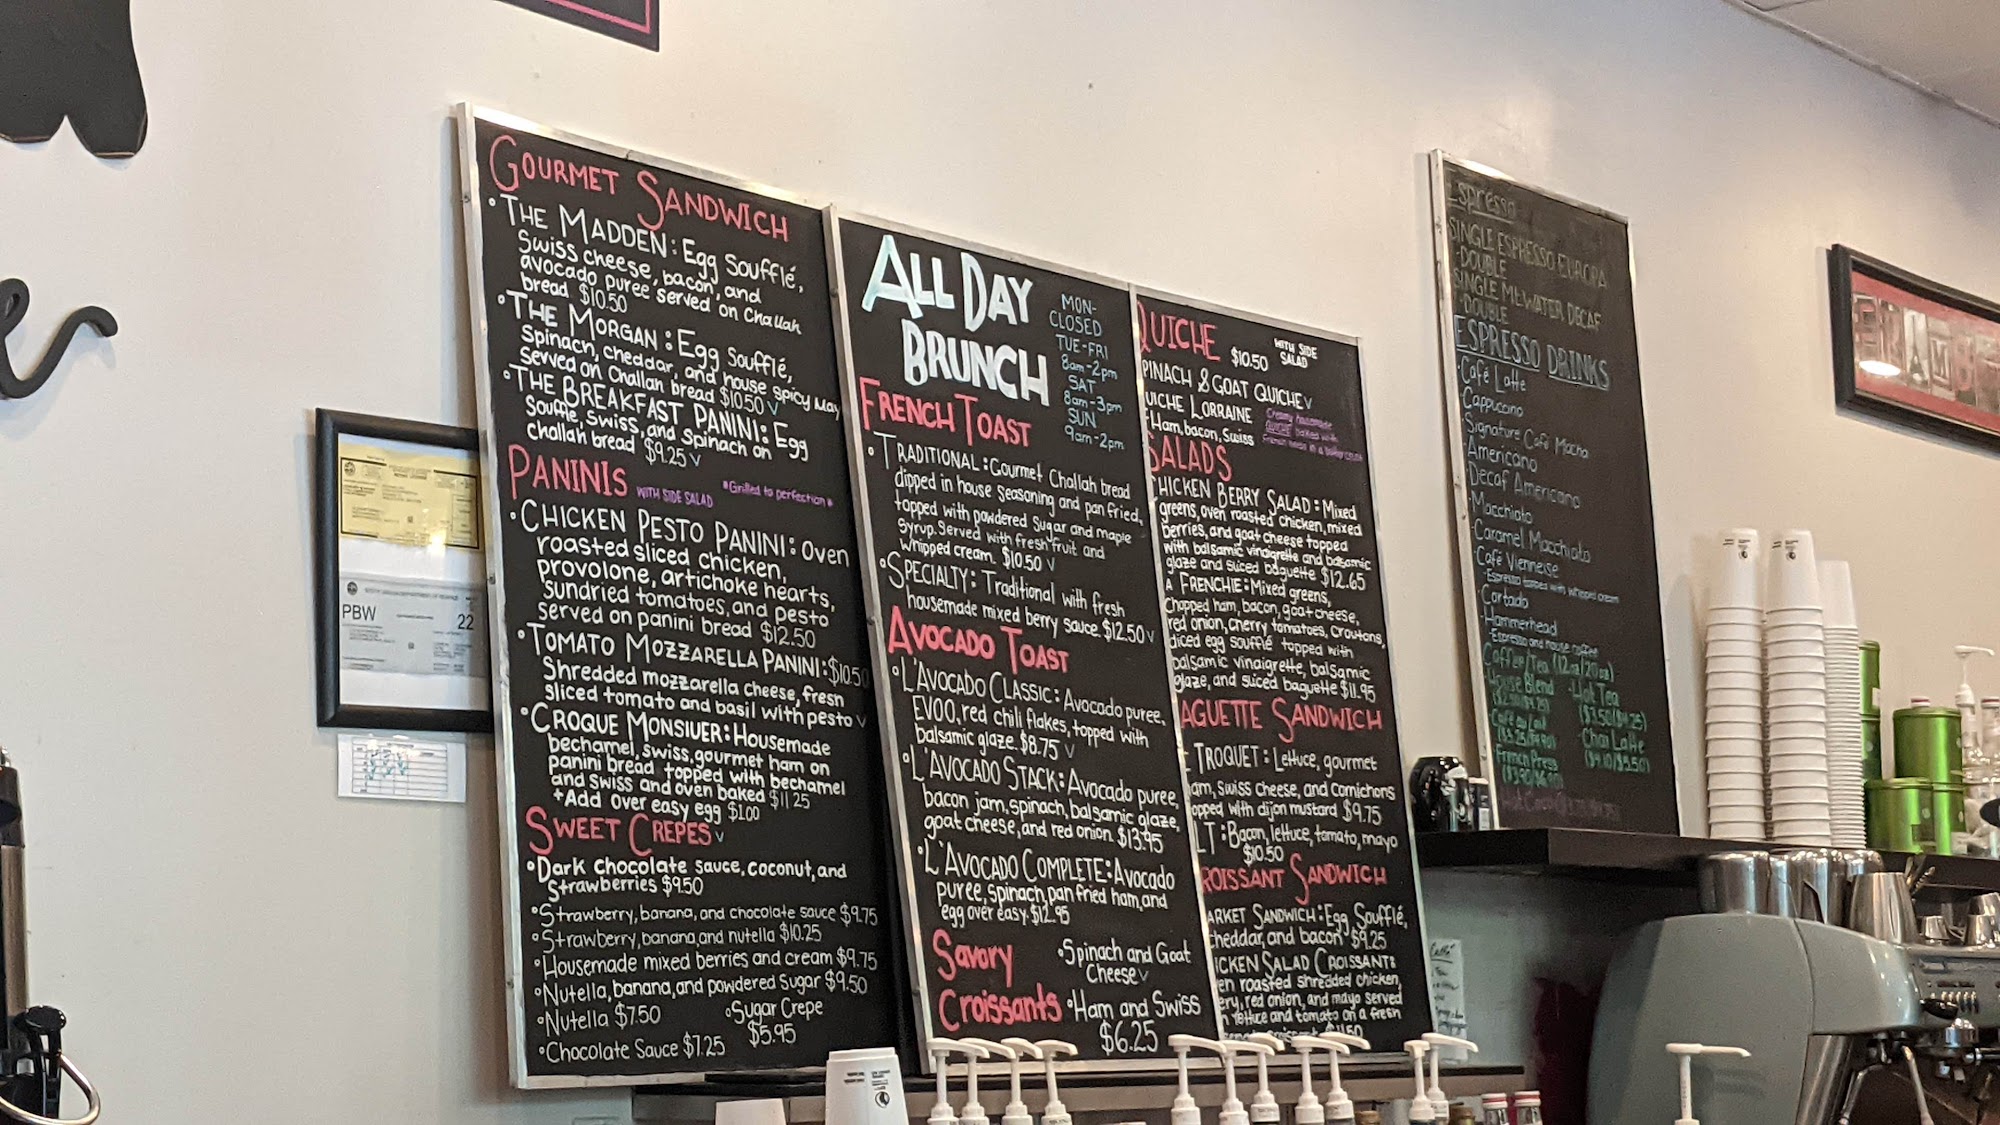 GOURMET SANDWICH
• THE MADDEN: Egg Soufflé,
Swiss cheese, bacon, and
avocado puree served on Challah
bread $10.50
• THE MORGAN: Egg Soufflé,
Spinach, cheddar, and house spicy May
served on Challah bread $10.50 V
• THE BREAKFAST PANINI: Egg
Souffle, Swiss, and Spinach on
challah bread $9.25 V
PANINIS WITH SIDE SALAD *Grilled to perfection*
• CHICKEN PESTO PANINI: Oven
roasted sliced chicken,
provolone, artichoke hearts,
sundried tomatoes, and pesto
served on panini bread $12.50
• TOMATO MOZZARELLA PANINI: $10.50
Shredded mozzarella cheese, fresh
sliced tomato and basil with pesto V
• CROQUE MONSIUER: Housemade
bechamel, swiss, gourmet ham on
panini bread topped with bechamel
and swiss and oven baked $11.25
+Add over easy egg $1.00
SWEET CREPES V
• Dark chocolate sauce, coconut, and
Strawberries $9.50
• Strawberry, banana, and chocolate sauce $9.75
• Strawberry, banana, and nutella $10.25
• Housemade mixed berries and cream $9.75
• Nutella, banana, and powdered Sugar $9.50
• Nutella $7.50
• Sugar Crepe
$5.95
• Chocolate Sauce $7.25
ALL DAY
BRUNCH
MON-
CLOSED
TUE-FRI
8am-2pm
SAT
8am-3pm
SUN
9am-2pm
FRENCH TOAST
• TRADITIONAL: Gourmet Challah bread
dipped in house seasoning and pan fried,
topped with powdered sugar and maple
syrup. Served with fresh fruit and
whipped cream. $10.50 V
• SPECIALTY: Traditional with fresh
housemade mixed berry sauce. $12.50 V
AVOCADO TOAST
• L'AVOCADO CLASSIC: Avocado puree,
EVOO, red chili flakes, topped with
balsamic glaze. $8.75 V
• L'AVOCADO STACK: Avocado puree,
bacon jam, spinach, balsamic glaze,
goat cheese, and red onion. $13.95
• L'AVOCADO COMPLETE: Avocado
puree, spinach, pan fried ham, and
egg over easy. $12.95
Savory
Croissants
• Spinach and Goat
Cheese V
• Ham and Swiss
$6.25
QUICHE $10.50 WITH SIDE
SALAD
PINACH & GOAT QUICHE V
UICHE LORRAINE
Ham, bacon, Swiss
Creamy housemade
QUICHE baked with
SALADS
HICKEN BERRY SALAD: Mixed
greens, oven roasted chicken, mixed
berries, and goat cheese topped
with balsamic vinaigrette and balsamic
glaze and sliced baguette $12.65
A FRENCHIE: Mixed greens,
Chopped ham, bacon, goat cheese,
red onion, cherry tomatoes, croutons,
diced egg soufflé topped with
balsamic vinaigrette, balsamic
glaze, and sliced baguette $11.95
AGUETTE SANDWICH
TROQUET: Lettuce, gourmet
am, swiss cheese, and cornichons
opped with dijon mustard $9.75
LT: Bacon, lettuce, tomato, mayo
$10.50
ROISSANT SANDWICH
ARKET SANDWICH: Egg Soufflé,
cheddar, and bacon $9.25
ICKEN SALAD CROISSANT:
en roasted shredded chicken,
ery, red onion, and mayo served
n lettuce and tomato on a fresh
$11.50
Espresso
SINGLE ESPRESSO EUROPA
-DOUBLE
SINGLE MT. WATER DECAF
-DOUBLE
ESPRESSO DRINKS
·Café Latte
·Cappuccino
·Signature Café Mocha
·Americano
·Decaf Americano
·Macchiato
·Caramel Macchiato
·Café Viennese
-Espresso topped with whipped cream
·Cortado
·Hammerhead
-Espresso and house coffee
Coffee/Tea (12oz/20oz)
·House Blend
·Hot Tea
($3.50/$4.25)
·Café au Lait
·Chai Latte
($4.10/$5.50)
·French Press
PBW
22